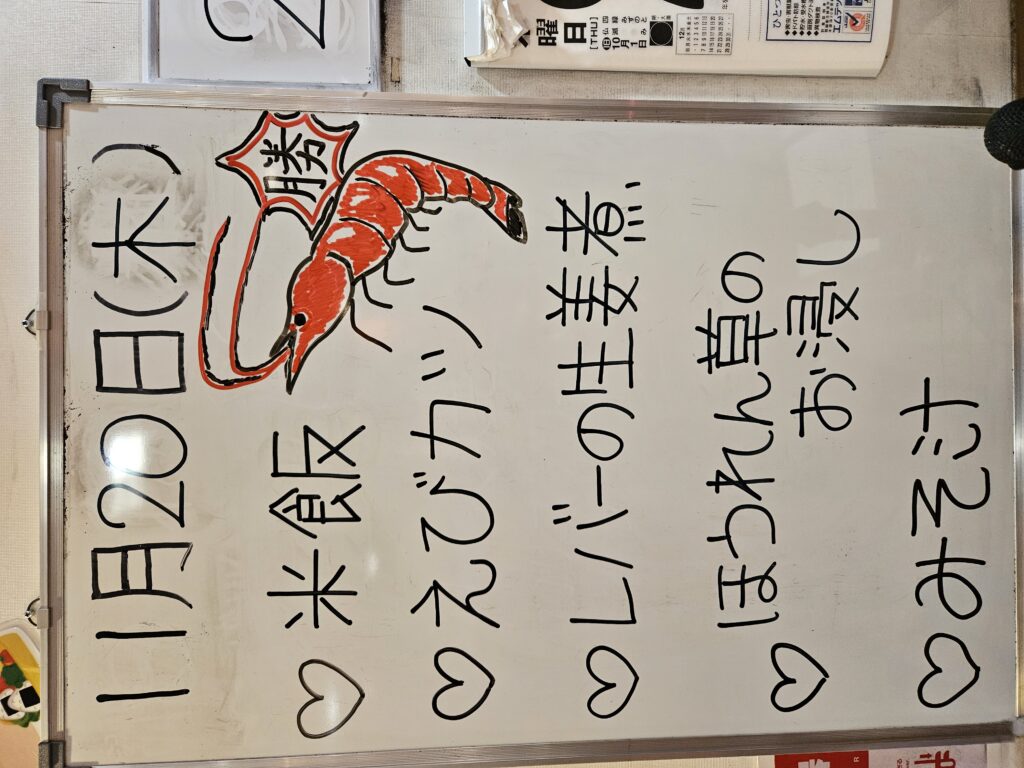 11月20日(木)
勝
♡米飯
♡えびカツ
♡レバーの生姜煮
♡ほうれん草の
お浸し
♡みそ汁
曜日
[THU]
10月1日